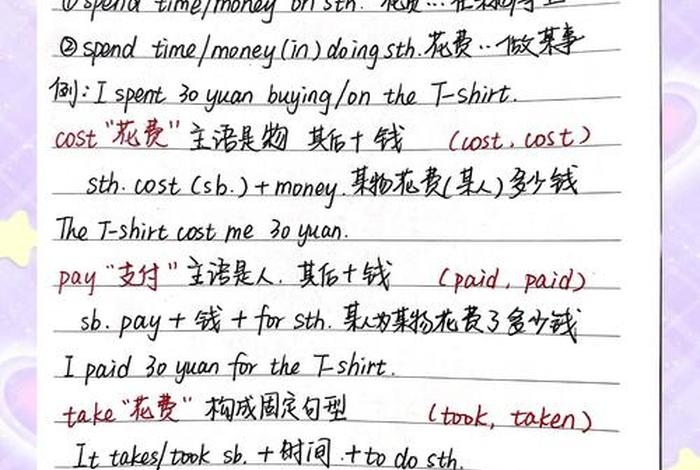 ①spend time/money on sth. 花费…在某物/事上
②spend time/money(in)doing sth.花费…做某事
例:I spent 30 yuan buying/on the T-shirt.
cost "花费" 主语是物 其后+钱 (cost, cost)
sth. cost (sb.)+money.某物花费(某人)多少钱
The T-shirt cost me 30 yuan.
pay "支付" 主语是人. 其后+钱 (paid, paid)
sb. pay + 钱 + for sth. 某人为某物花费了多少钱
I paid 30 yuan for the T-shirt.
take "花费" 构成固定句型 (took, taken)
It takes/took sb. +时间 +to do sth.